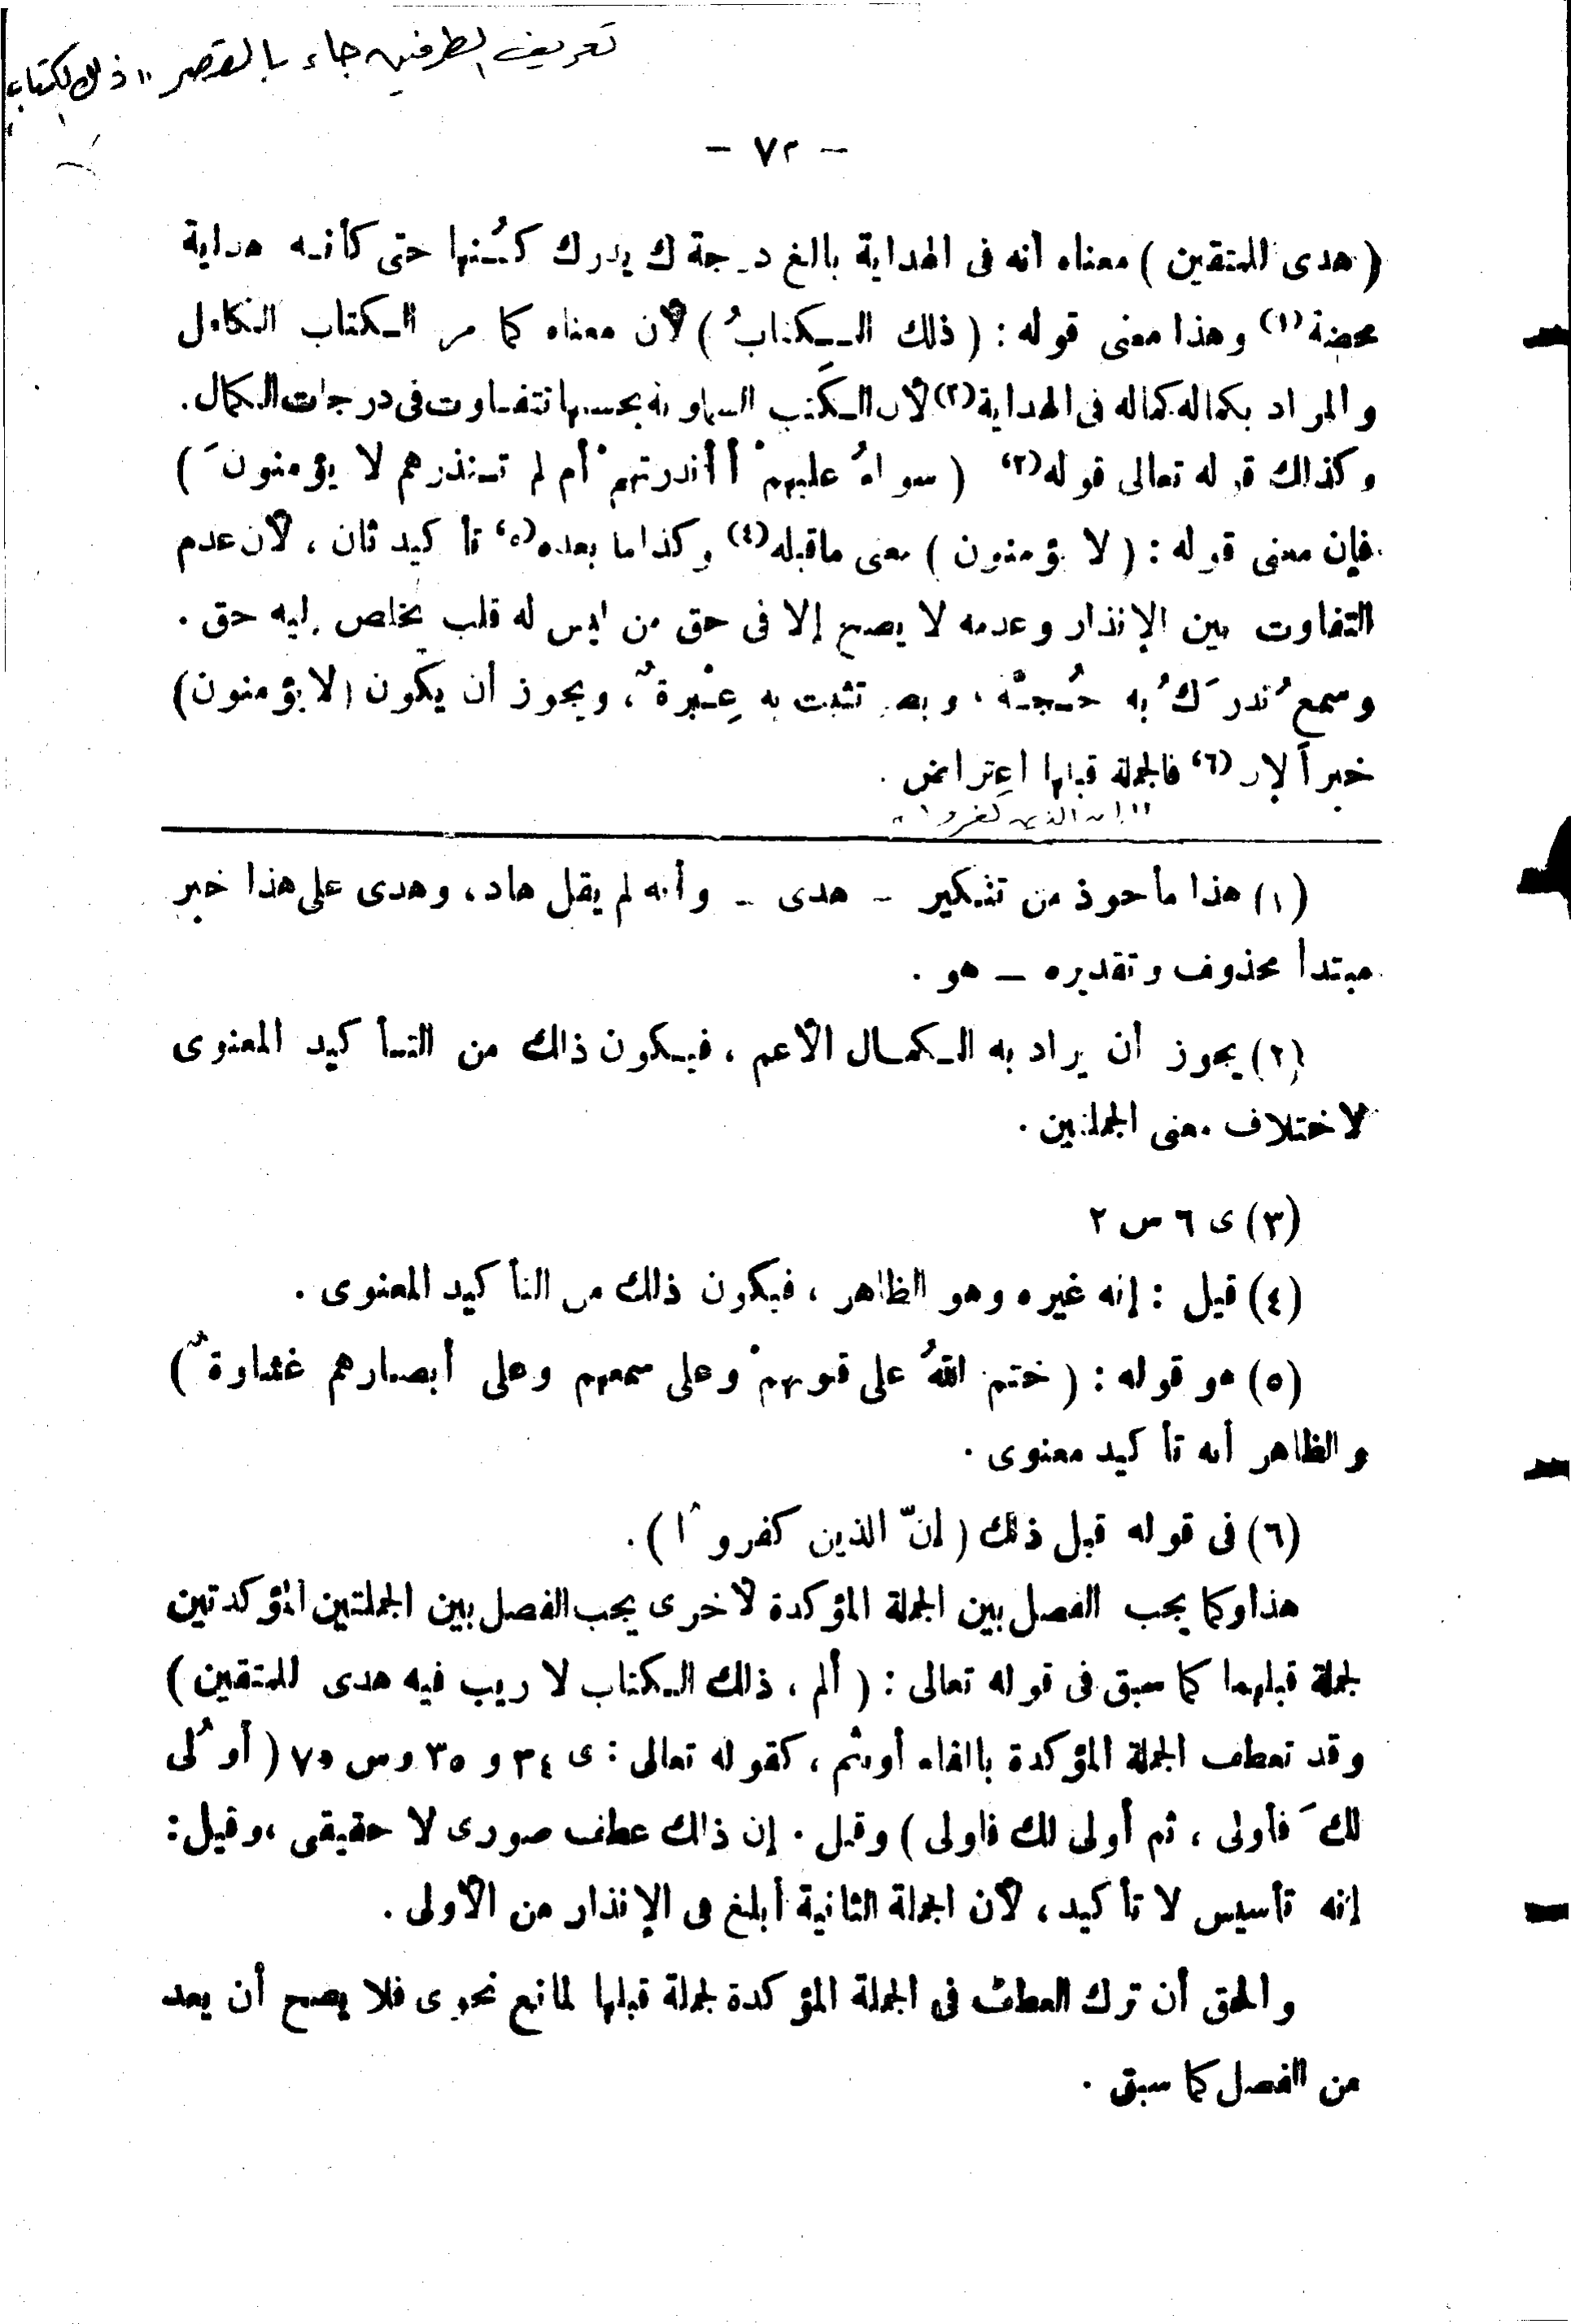 تعريف الطرفين جاء بالقصر "ذلك الكتاب"
- ٧٢ -
( هدى للمتقين ) معناه أنه فى الهداية بالغ درجة لا يدرك كُنهها حتى كأنه هداية
محضة (١) وهذا معنى قوله : ( ذلك الكتابُ ) لأن معناه كما مر الكتاب الكامل
والمراد بكماله كماله فى الهداية (٢) لأن الكتب السماوية بحسبها تتفاوت فى درجات الكمال .
وكذلك قوله تعالى قوله (٣) ( سواءُ عليهمْ أأنذرتهمْ أم لم تنذرهم لا يؤمنونَ )
فإن معنى قوله : ( لا يؤمنون ) معنى ماقبله (٤) وكذا ما بعده (٥) تأكيد ثان ، لأن عدم
التفاوت بين الإنذار وعدمه لا يصح إلا فى حق من ليس له قلب يخلص إليه حق .
وسمع تُدرَكُ به حُجة ، وبصر تثبت به عِبْرةٌ ، ويجوز أن يكون ( لا يؤمنون )
خبراً لإن (٦) فالجملة قبلها اعتراض .
" إن الذين كفروا "
(١) هذا مأخوذ من تنكير - هدى - وأنه لم يقل هاد ، وهدى على هذا خبر
مبتدأ محذوف وتقديره - هو .
(٢) يجوز أن يراد به الكمال الأعم ، فيكون ذلك من التأكيد المعنوى
لاختلاف معنى الجملتين .
(٣) ى ٦ س ٢
(٤) قيل : إنه غيره وهو الظاهر ، فيكون ذلك من التأكيد المعنوى .
(٥) هو قوله : ( ختم اللهُ على قلوبهمْ وعلى سمعهم وعلى أبصارهم غشاوةٌ )
والظاهر أنه تأكيد معنوى .
(٦) فى قوله قبل ذلك ( إنّ الذين كفروا ) .
هذا وكما يجب الفصل بين الجملة المؤكدة لأخرى يجب الفصل بين الجملتين المؤكدتين
لجملة قبلهما كما سبق فى قوله تعالى : ( ألم ، ذلك الكتاب لا ريب فيه هدى للمتقين )
وقد تعطف الجملة المؤكدة بالفاء أو بثم ، كقوله تعالى : ى ٣٤ و ٣٥ و س ٧٥ ( أوْلى
لكَ فأولى ، ثم أولى لك فأولى ) وقيل . إن ذلك عطف صورى لا حقيقى ، وقيل :
إنه تأسيس لا تأكيد ، لأن الجملة الثانية أبلغ فى الإنذار من الأولى .
والحق أن ترك العطف فى الجملة المؤكدة لجملة قبلها لمانع نحوى فلا يصح أن يعد
من الفصل كما سبق .